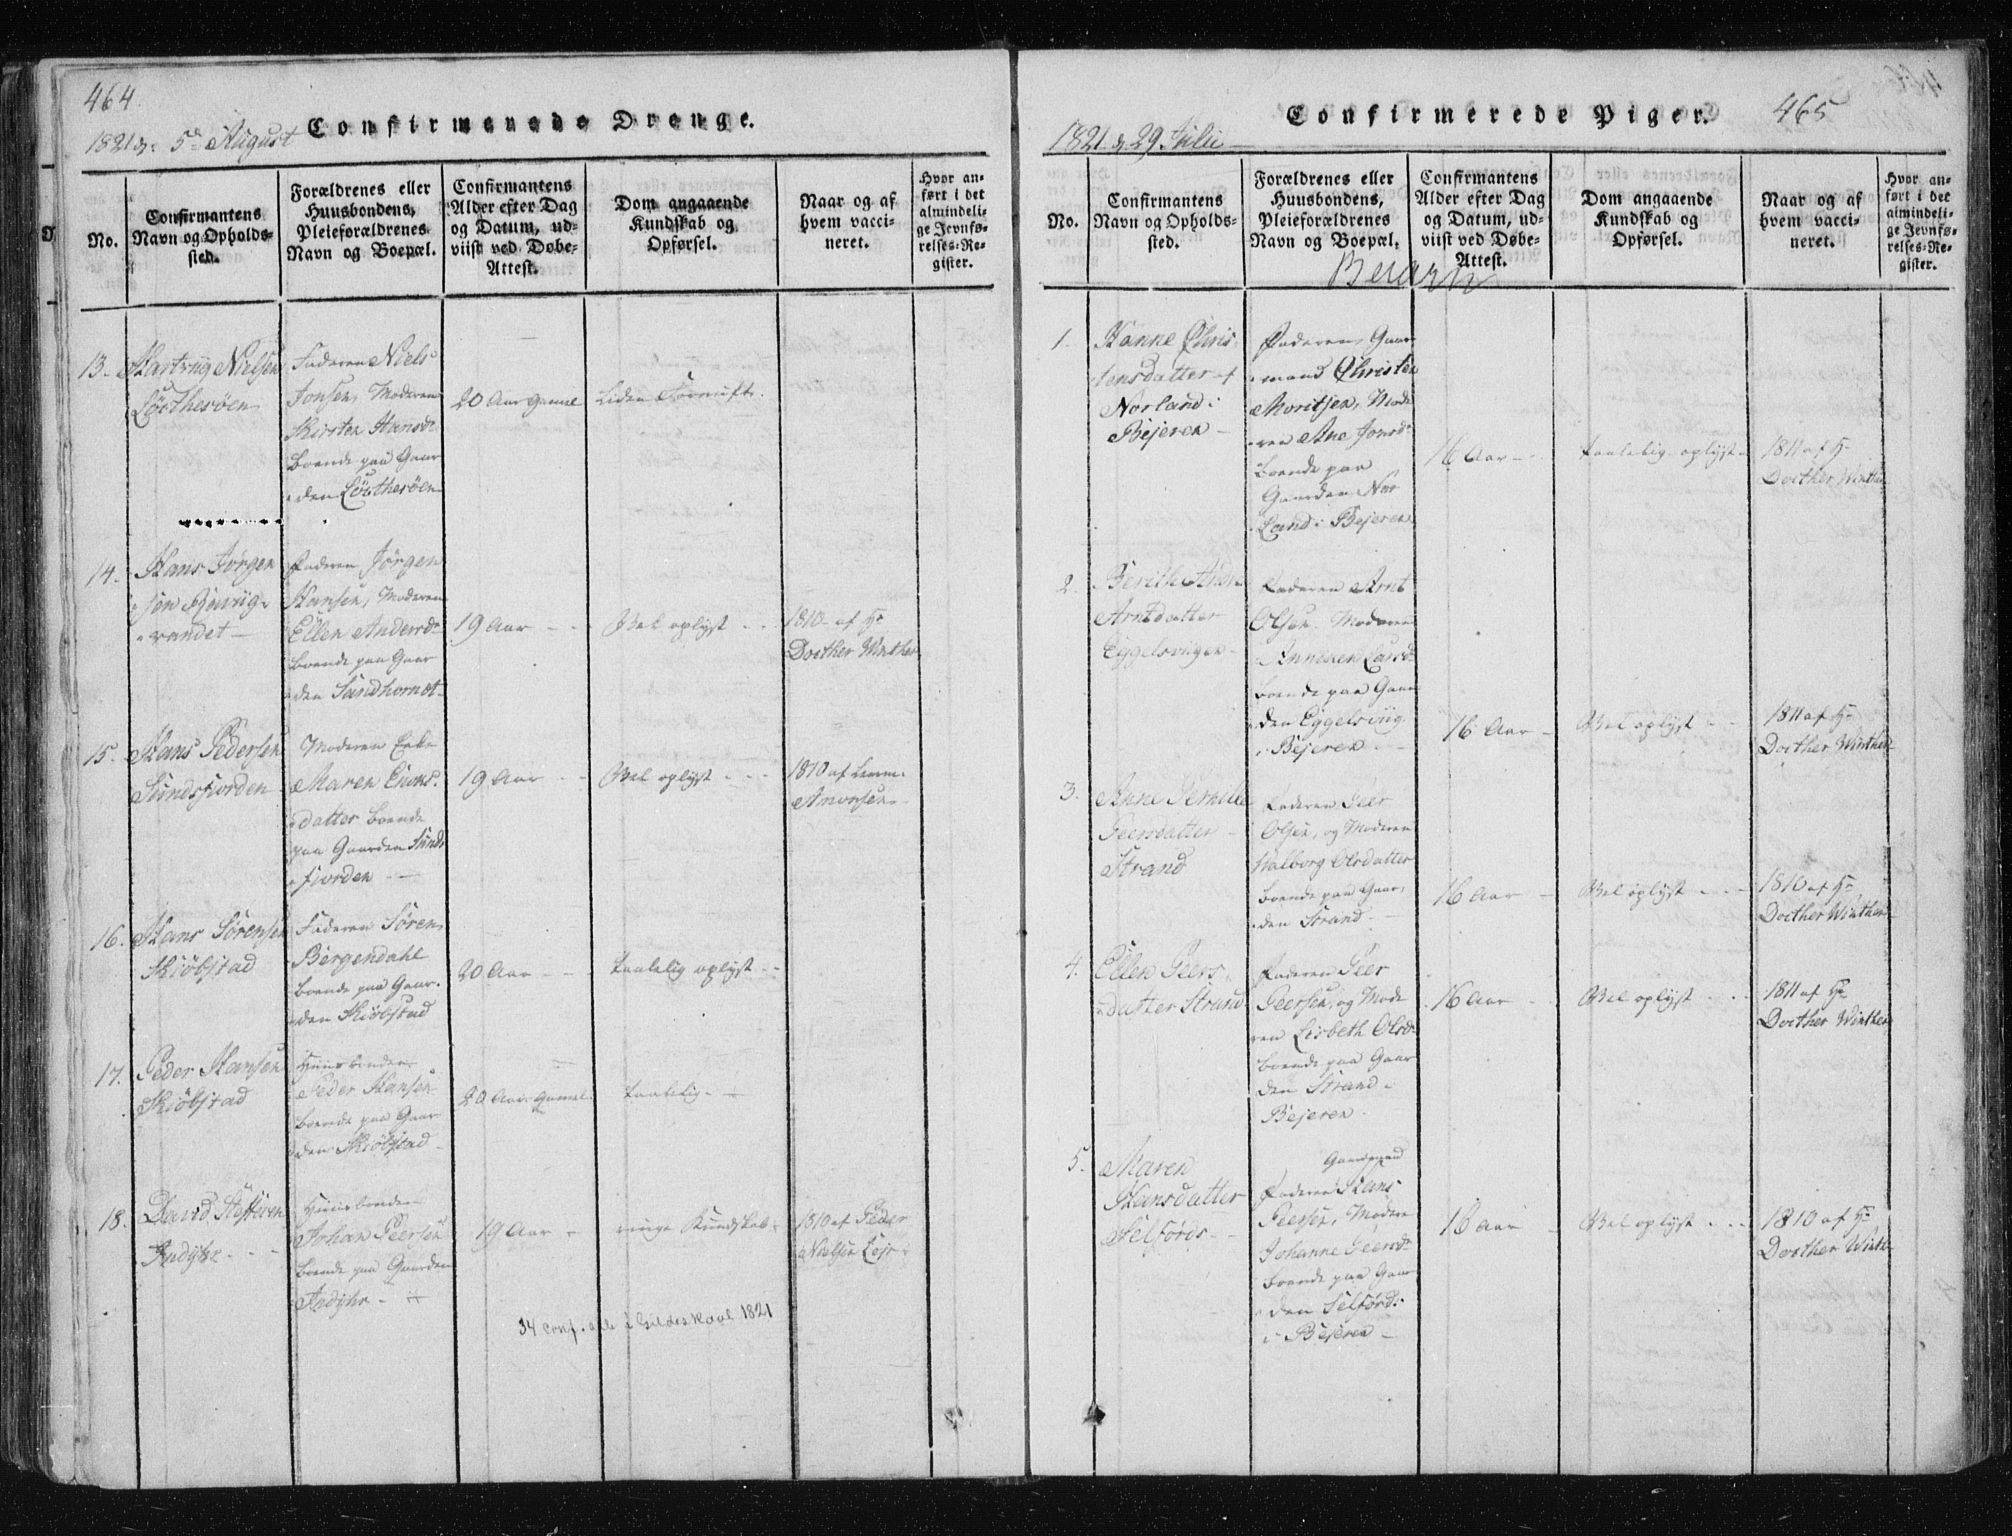 464.
Confirmerede Drenge.
1821 d. 5te August
No.
Confirmantens
Navn og Opholds-
sted.
Forældrenes eller
Huusbondens,
Pleieforældrenes
Navn og Boepæl.
Confirmantens
Alder efter Dag
og Datum, ud-
viist ved Døbe-
Attest.
Dom angaaende
Kundskab og
Opførsel.
Naar og af
hvem vacci-
neret.
Hvor an-
ført i det
almindeli-
ge Jevnfø-
relses-Re-
gister.
13.
Hartviig Nielsen
Faderen Niels
Jonsen, Moderen
Kirsten Hansdr
boende paa Gaar
den
20 Aar Gammel
Liden Fornuft.
14.
Hans Jørgen
sen
vandet
Faderen Jørgen
Hansen, Moderen
Ellen Andersdr
boende paa Gaar
den Sandhornet
19 Aar
Vel oplyst
1810 af Hr
Dorther Winther
15.
Hans Pedersen
Sundsfiorden
Moderen Enke
Maren
datter boende
paa Gaarden Sunds
fiorden
19 Aar
Vel oplyst
1810 af
16.
Hans Sørensen
Skiøbstad
Faderen Søren
Bergendahl
boende paa Gaar
den Skiøbstad
20 Aar
taalelig oplyst
17.
Peder Hansen
Skiøbstad
Huusbonden
Peder Hansen
boende paa Gaar
den Skiøbstad
20 Aar Gamel
taalelig
18.
David Steffensen
Huusbonden
Johan Peersen
boende paa Gaarden
19 Aar
ringe Kundskab
1810 af Peder
34 conf. alle i Gildeskaal 1821
Confirmerede Piger.
465
1821 d. 29 Julii
No.
Confirmantens
Navn og Opholds-
sted.
Forældrenes eller
Huusbondens,
Pleieforældrenes
Navn og Boepæl.
Confirmantens
Alder efter Dag
og Datum, ud-
viist ved Døbe-
Attest.
Dom angaaende
Kundskab og
Opførsel.
Naar og af
hvem vacci-
neret.
Hvor an-
ført i det
almindeli-
ge Jevnfø-
relses-Re-
gister.
Beiarn
1.
Hanne Chris
tensdatter
Norland i
Bejeren
Faderen Gaar
mand Christen
Moritsen, Mode
ren Ane Jonsdr
boende paa
Gaarden Nor
Land i Bejeren
16 Aar
taalelig oplyst
1811 af Hr
Dorther Winther
2.
Berith Anna
Arntdatter
Eggelsviigen
Faderen Arnt
Olsen. Moderen
Annexen Larsdr
boende paa Gaar
den Eggelsviig
i Bejeren
16 Aar
Vel oplyst
1811 af Hr
Dorther Winther
3.
Anne Pernille
Peersdatter
Strand
Faderen Peer
Olsen, og Moderen
Walborg Olsdatter
boende paa Gaar
den Strand
16 Aar
Vel oplyst
1810 af Hr
Dorther Winther
4.
Ellen Peers
datter Strand
Faderen Peer
Peersen, og Mode
ren Lisbeth Olsdr
boende paa Gaar
den Strand i
Bejeren
16 Aar
Vel oplyst
1811 af Hr
Dorther Winther
5.
Maren
Hansdatter
Selfords
Gaardmand
Faderen Hans
Peersen, Moderen
Johanne Peersdr
boende paa Gaar
den Selford
i Bejeren
16 Aar
Vel oplyst
1810 af Hr
Dorther Winth